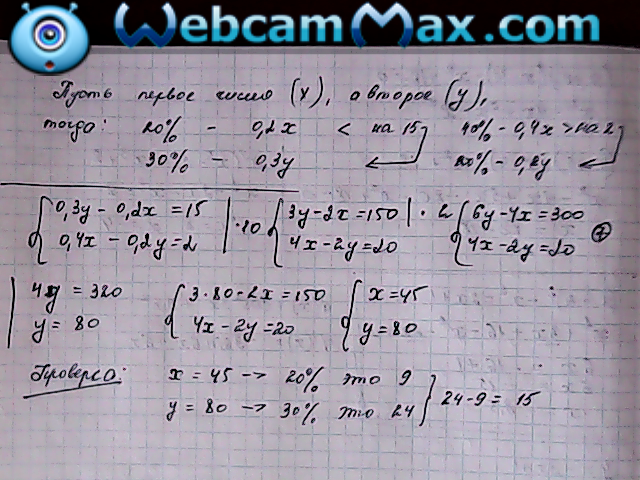 WebcamMax.com
Пусть первое число (x), а второе (y),
тогда: 20% - 0,2x < на 15 40% - 0,4x > на 2
30% - 0,3y 20% - 0,2y
{0,3y - 0,2x = 15 | ·10 {3y - 2x = 150 | · 2 {6y - 4x = 300
{0,4x - 0,2y = 2 {4x - 2y = 20 {4x - 2y = 20
4y = 320 {3·80 - 2x = 150 {x = 45
y = 80 {4x - 2y = 20 {y = 80
Проверка: x = 45 -> 20% это 9
y = 80 -> 30% это 24 } 24 - 9 = 15